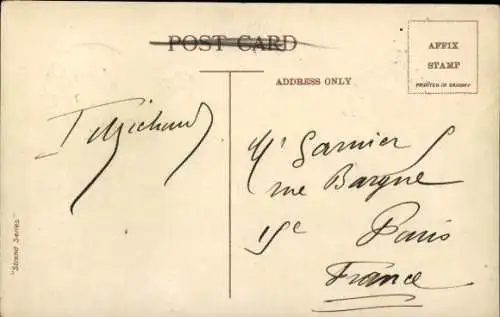 POST CARD
AFFIX
STAMP
PRINTED IN SAXONY
ADDRESS ONLY
Michaud
Mr Garnier
rue Bargue
15e Paris
France
"Strand Series"